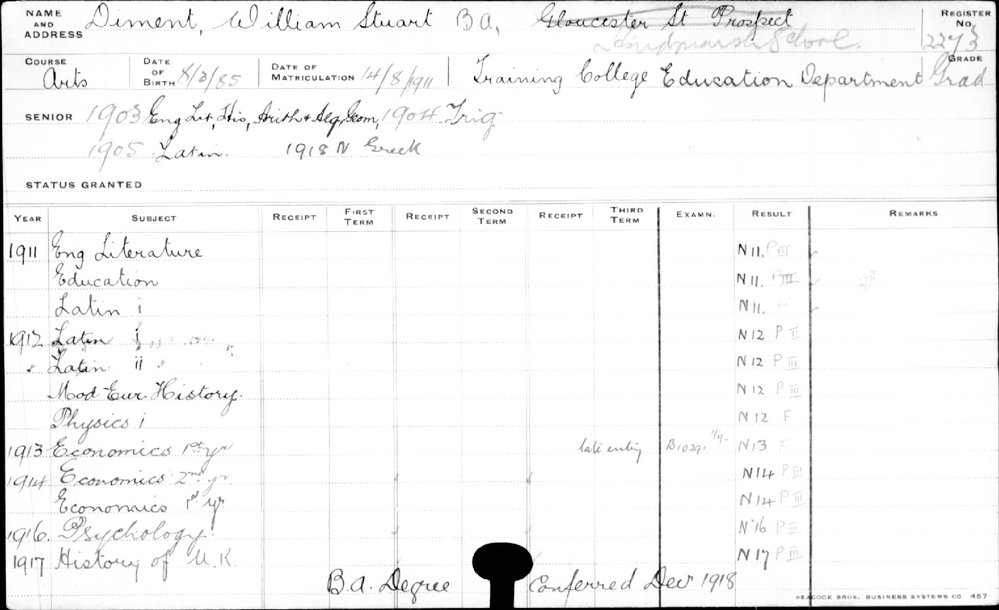 NAME AND ADDRESS Diment, William Stuart B A, Gloucester St Prospect REGISTER No. 2273
Hindmarsh School.
COURSE Arts DATE OF BIRTH 8/3/85 DATE OF MATRICULATION 14/8/1911 Training College Education Department GRADE Grad
SENIOR 1903 Eng Lit, His, Arith & Alg, Geom, 1904 Trig.
1905 Latin. 1918 N Greek
STATUS GRANTED
YEAR SUBJECT RECEIPT FIRST TERM RECEIPT SECOND TERM RECEIPT THIRD TERM EXAMN. RESULT REMARKS
1911 Eng Literature N 11. P III
Education N 11. P III
Latin i N 11. F
1912 Latin i N 12 P II
" Latin ii N 12 P III
Mod Eur. History. N 12 P III
Physics i N 12 F
1913 Economics 1st yr late entry B1029. 1/1/- N13 F
1914 Economics 2nd yr N14 P III
Economics 1st yr N14 P III
1916. Psychology N'16 P III
1917 History of U.K N 17 P III
B.A. Degree Conferred Decr 1918
PEACOCK BROS. BUSINESS SYSTEMS CO 457